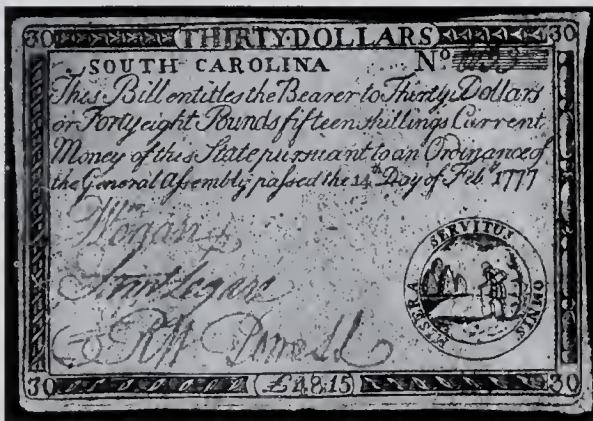 30 THIRTY DOLLARS 30
SOUTH CAROLINA No
This Bill entitles the Bearer to Thirty Dollars
or Forty eight Pounds fifteen shillings Current
Money of this State pursuant to an Ordinance of
the General Assembly passed the 14th Day of Feby 1777
Powell
MISERA SERVITUS OMNIS
30 £48:15 30